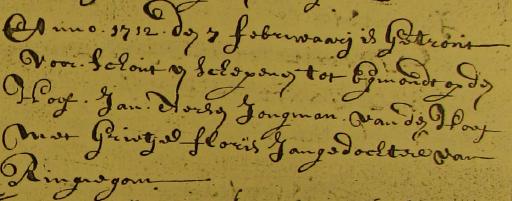 Anno. 1712. den 7 februwaarij is Getrout
voor. schout en schepenen tot Egmondt op den
Hoef. Jan. Jongman. van den Hoef
met Grietjes floris Jongedochter van
Ringegom